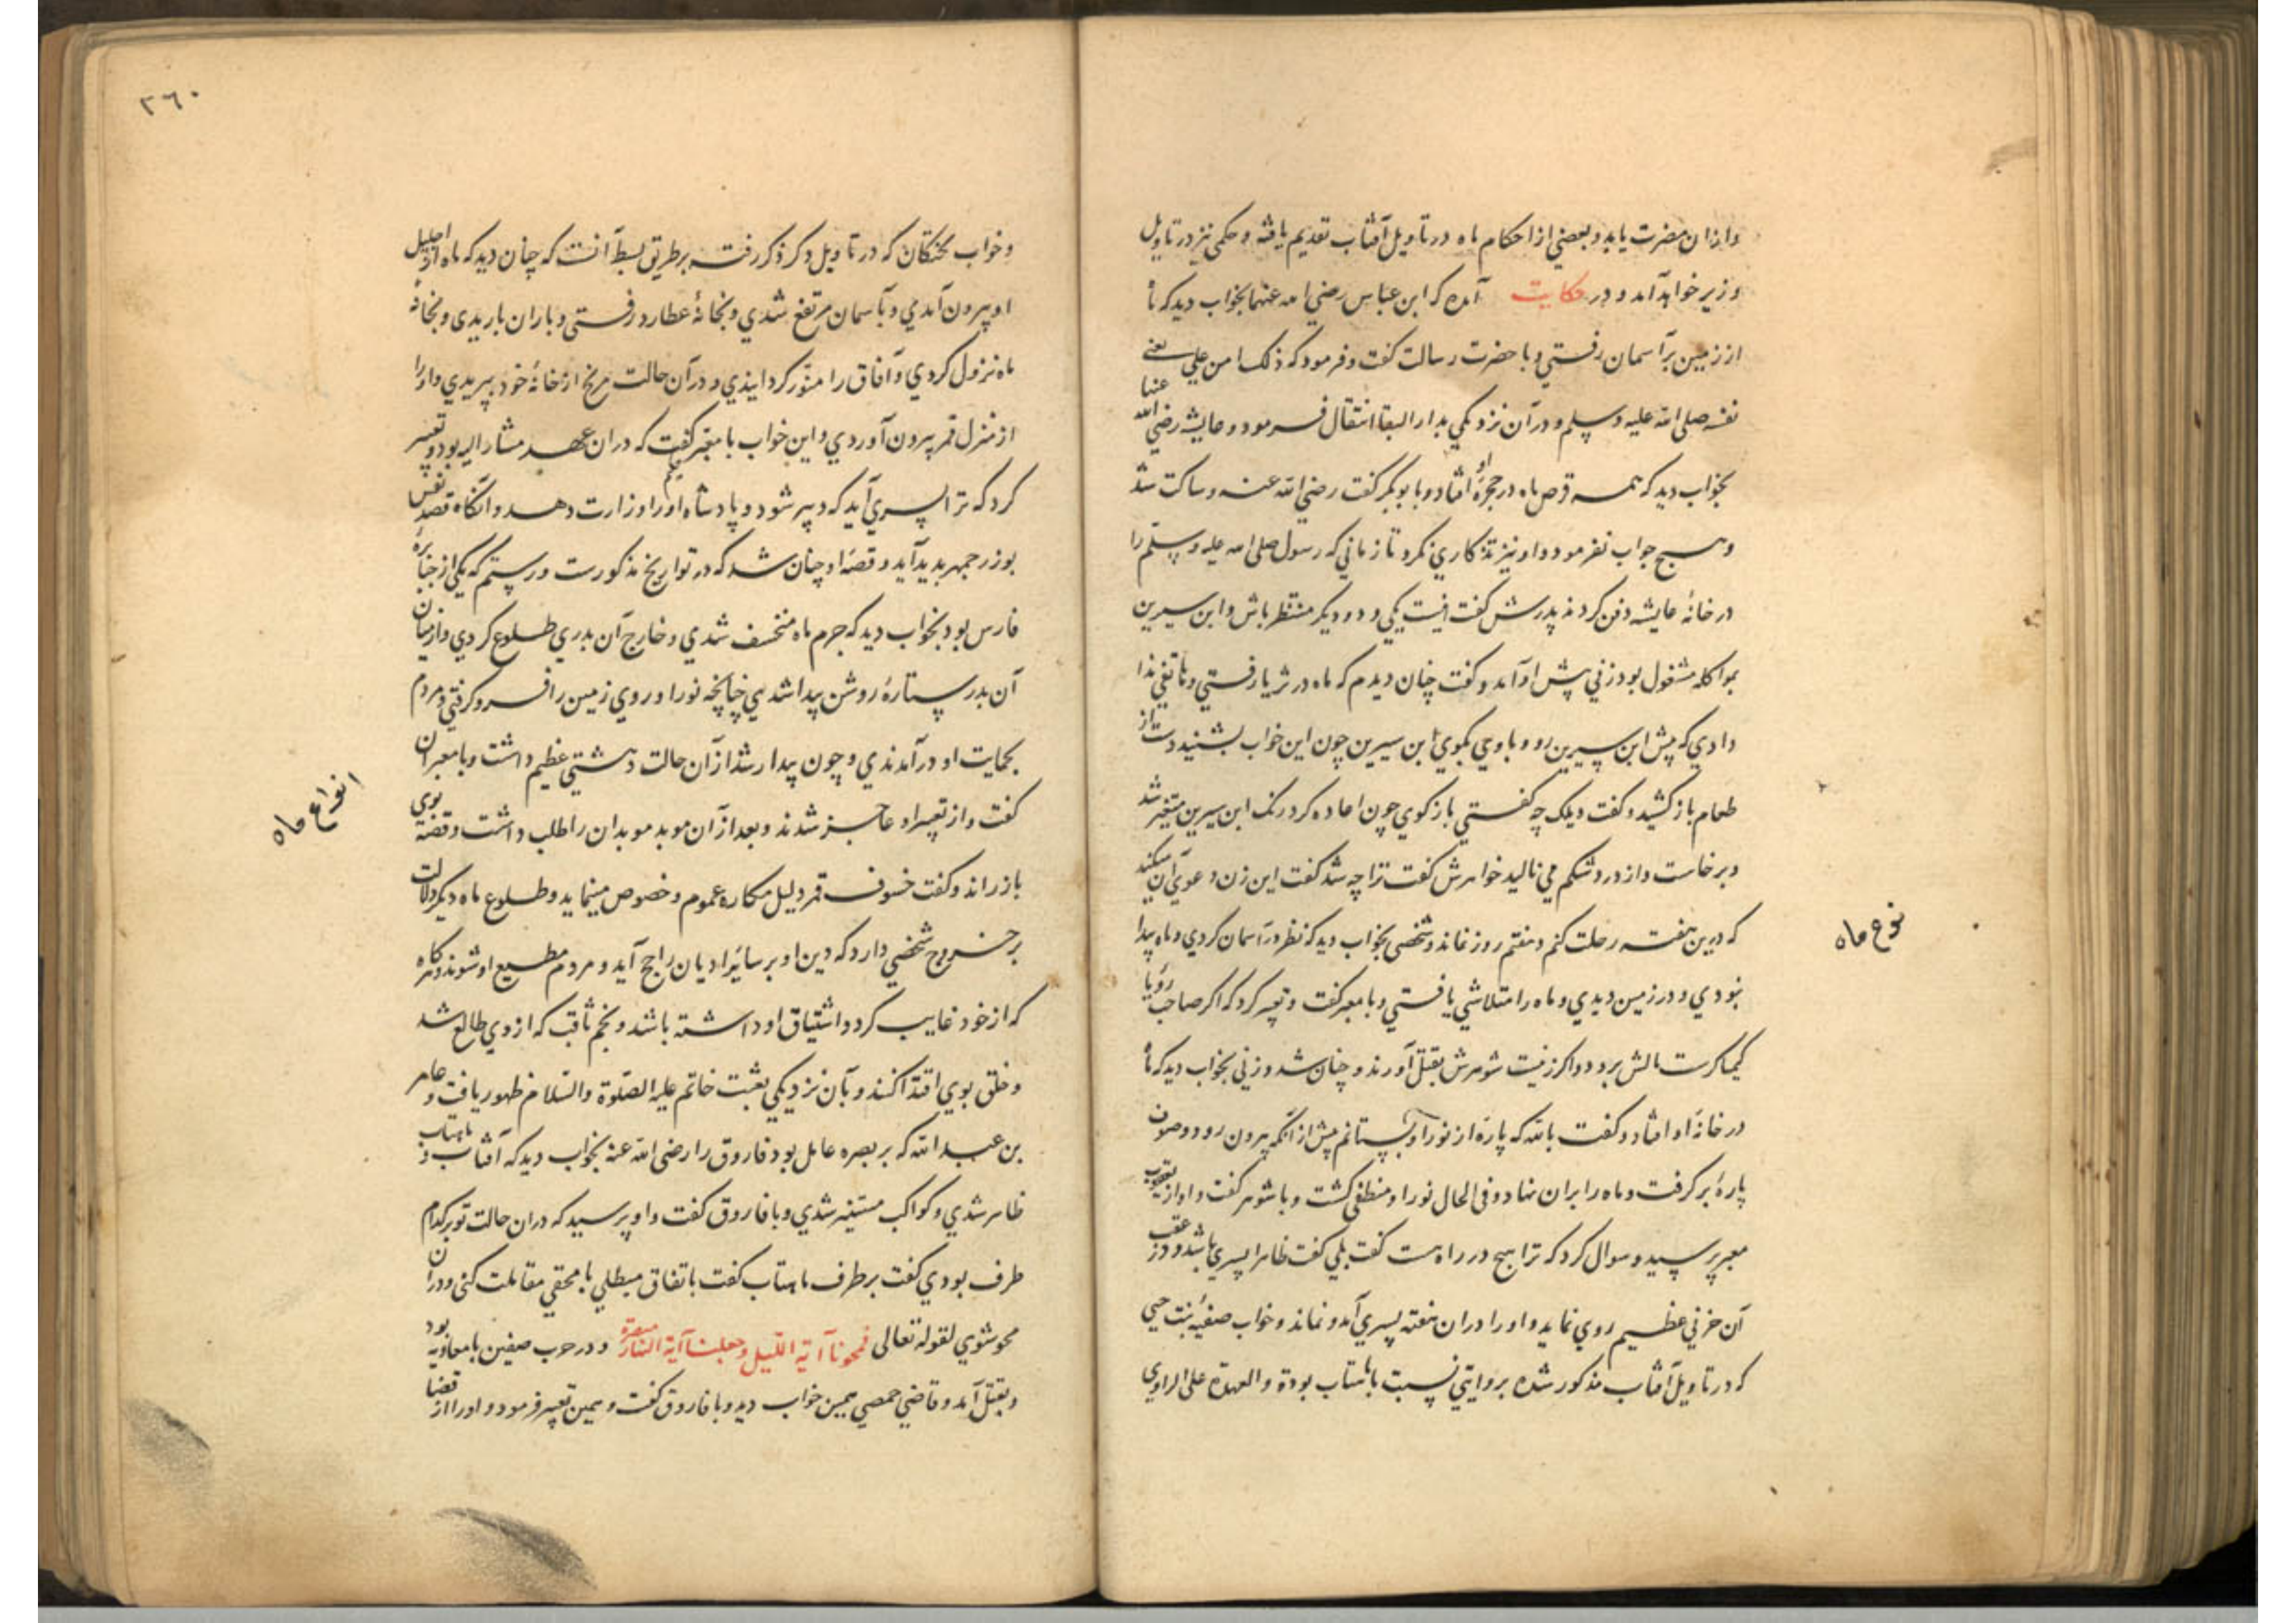 وازان مضرت یابد و بعضی از احکام ماه در تاویل آفتاب تقدیم یافته و حکمی نیز در تاویل
وزیر خواهد آمد و در حکایت آمده که ابن عباس رضی الله عنهما بخواب دید که ماه
از زمین بر آسمان رفتی و با حضرت رسالت گفت و فرمود که ذلک ابن علی یعنی
نفسه صلی الله علیه وسلم و در آن نزدیکی بدار البقا انتقال فرمود و عایشه رضی الله عنها
بخواب دید که سه قرص ماه در حجرهٔ او افتاد و با بوبکر گفت رضی الله عنه و ساکت شد
و هیچ جواب نفرمود و او نیز تذکاری نکرد تا زمانی که رسول صلی الله علیه وسلم را
در خانهٔ عایشه دفن کردند پدرش گفت اینست یکی و دو دیگر منتظر باش و ابن سیرین
بمواکله مشغول بود زنی پیش او آمد و گفت چنان دیدم که ماه در ثریا رفتی و هاتفی ندا
دادی که پیش ابن سیرین رو و با وی بگوی ابن سیرین چون این خواب بشنید دست از
طعام باز کشید و گفت ویلک چه گفتی باز گوی چون اعاده کرد رنگ ابن سیرین متغیر شد
و برخاست و از درد شکم می نالید خواهرش گفت ترا چه شد گفت این زن دعوی آن میکند
که درین هفته رحلت کنم و هفتم روز نماند و شخصی بخواب دید که نظر در آسمان کردی و ماه پیدا
نبودی و در زمین دیدی و ماه را متلاشی یافتی و با معبر گفت و تعبیر کرد که اگر صاحب رؤیا
کیمیاگرست مالش برود و اگر زنیست شوهرش بقتل آورند و چنان شد و زنی بخواب دید که ماه
در خانهٔ او افتاد و گفت بالله که پاره از نور او بستانم پیش از آنکه بیرون رود و
پارهٔ بر گرفت و ماه را بران نهاد و فی الحال نور او منطفی گشت و با شوهر گفت و او از
معبر پرسید و سوال کرد که ترا هیچ در راه هست گفت بلی گفت ظاهرا پسری باشد و در عقب
آن حزنی عظیم روی نماید و او را در ان هفته پسری آمد و نماند و خواب صفیه بنت حیی
که در تاویل آفتاب مذکور شده بروایتی نسبت با ماهتاب بوده و العهدة علی الراوی
نوع ماه
۲۶۰
و خواب بختگان که در تاویل ذکر ذکر رفت بر طریق بسط آنست که چنان دید که ماه از احلیل
او بیرون آمدی و بآسمان مرتفع شدی و بخانهٔ عطارد رفتی و باران باریدی و بخانهٔ
ماه نزول کردی و آفاق را منور گردانیدی و در آن حالت مریخ از خانهٔ خود بپریدی و او را
از منزل قمر بیرون آوردی و این خواب با معبر گفت که دران عهد مشار الیه بود و تعبیر
کرد که ترا پسری آید که دبیر شود و پادشاه او را وزارت دهد و آنگاه قصد نفس
بوزرجمهر پدید آید و قصهٔ او چنان شد که در تواریخ مذکورست و رستم که یکی از جبابرهٔ
فارس بود بخواب دید که جرم ماه منخسف شدی و خارج آن بدری طلوع کردی و از میان
آن بدر ستارهٔ روشن پیدا شدی چنانچه نور او روی زمین را فرو گرفتی و مردم
بحمایت او در آمدندی و چون بیدار شد از آن حالت دهشتی عظیم داشت و با معبران
گفت و از تعبیر او عاجز شدند و بعد از آن موبد موبدان را طلب داشت و قصه بوی
باز راند و گفت خسوف قمر دلیل مکاره عموم و خصوص مینماید و طلوع ماه دیگر دلالت
بر خروج شخصی دارد که دین او بر سایر ادیان راجح آید و مردم مطیع او شوند و هر گاه
که از خود غایب گردد اشتیاق او داشته باشد و نجم ثاقب که از وی طالع شد
و خلق بوی اقتدا کنند و بآن نزدیکی بعثت خاتم علیه الصلوة والسلام ظهور یافت و عامر
بن عبد الله که بر بصره عامل بود فاروق را رضی الله عنه بخواب دید که آفتاب و ماهتاب
ظاهر شدی و کواکب مستنیر شدی و با فاروق گفت و او پرسید که دران حالت تو بر کدام
طرف بودی گفت بر طرف ماهتاب گفت باتفاق مبطلی با محقی مقاتلت کنی و دران
محو شوی لقوله تعالی فمحونا آیة اللیل وجعلنا آیة النهار مبصرة و در حرب صفین با معاویه بود
و بقتل آمد و قاضی حمص همین خواب دید و با فاروق گفت و همین تعبیر فرمود و او را از قضا
انواع ماه